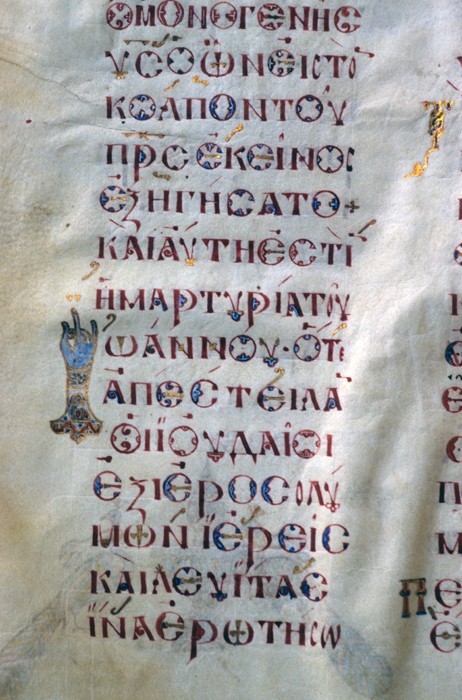 ΟΜΟΝΟΓΕΝΗC
ΥCΟΩΝΕΙCΤΟ̅
ΚΟΛΠΟΝΤΟΥ
ΠΡCΕΚΕΙΝΟC
ΕΞΗΓΗCΑΤΟ+
ΚΑΙΑΥΤΗΕCΤΙ̅
ΗΜΑΡΤΥΡΙΑΤΟΥ
ΙΩΑΝΝΟΥ·ΟΤΕ
ΑΠΕCΤΕΙΛΑ̅
ΟΙΪΟΥΔΑΙΟΙ
ΕΞΙΕΡΟCΟΛΥ
ΜΩΝΪΕΡΕΙC
ΚΑΙΛΕΥΪΤΑC
ΪΝΑΕΡΩΤΗCΩ